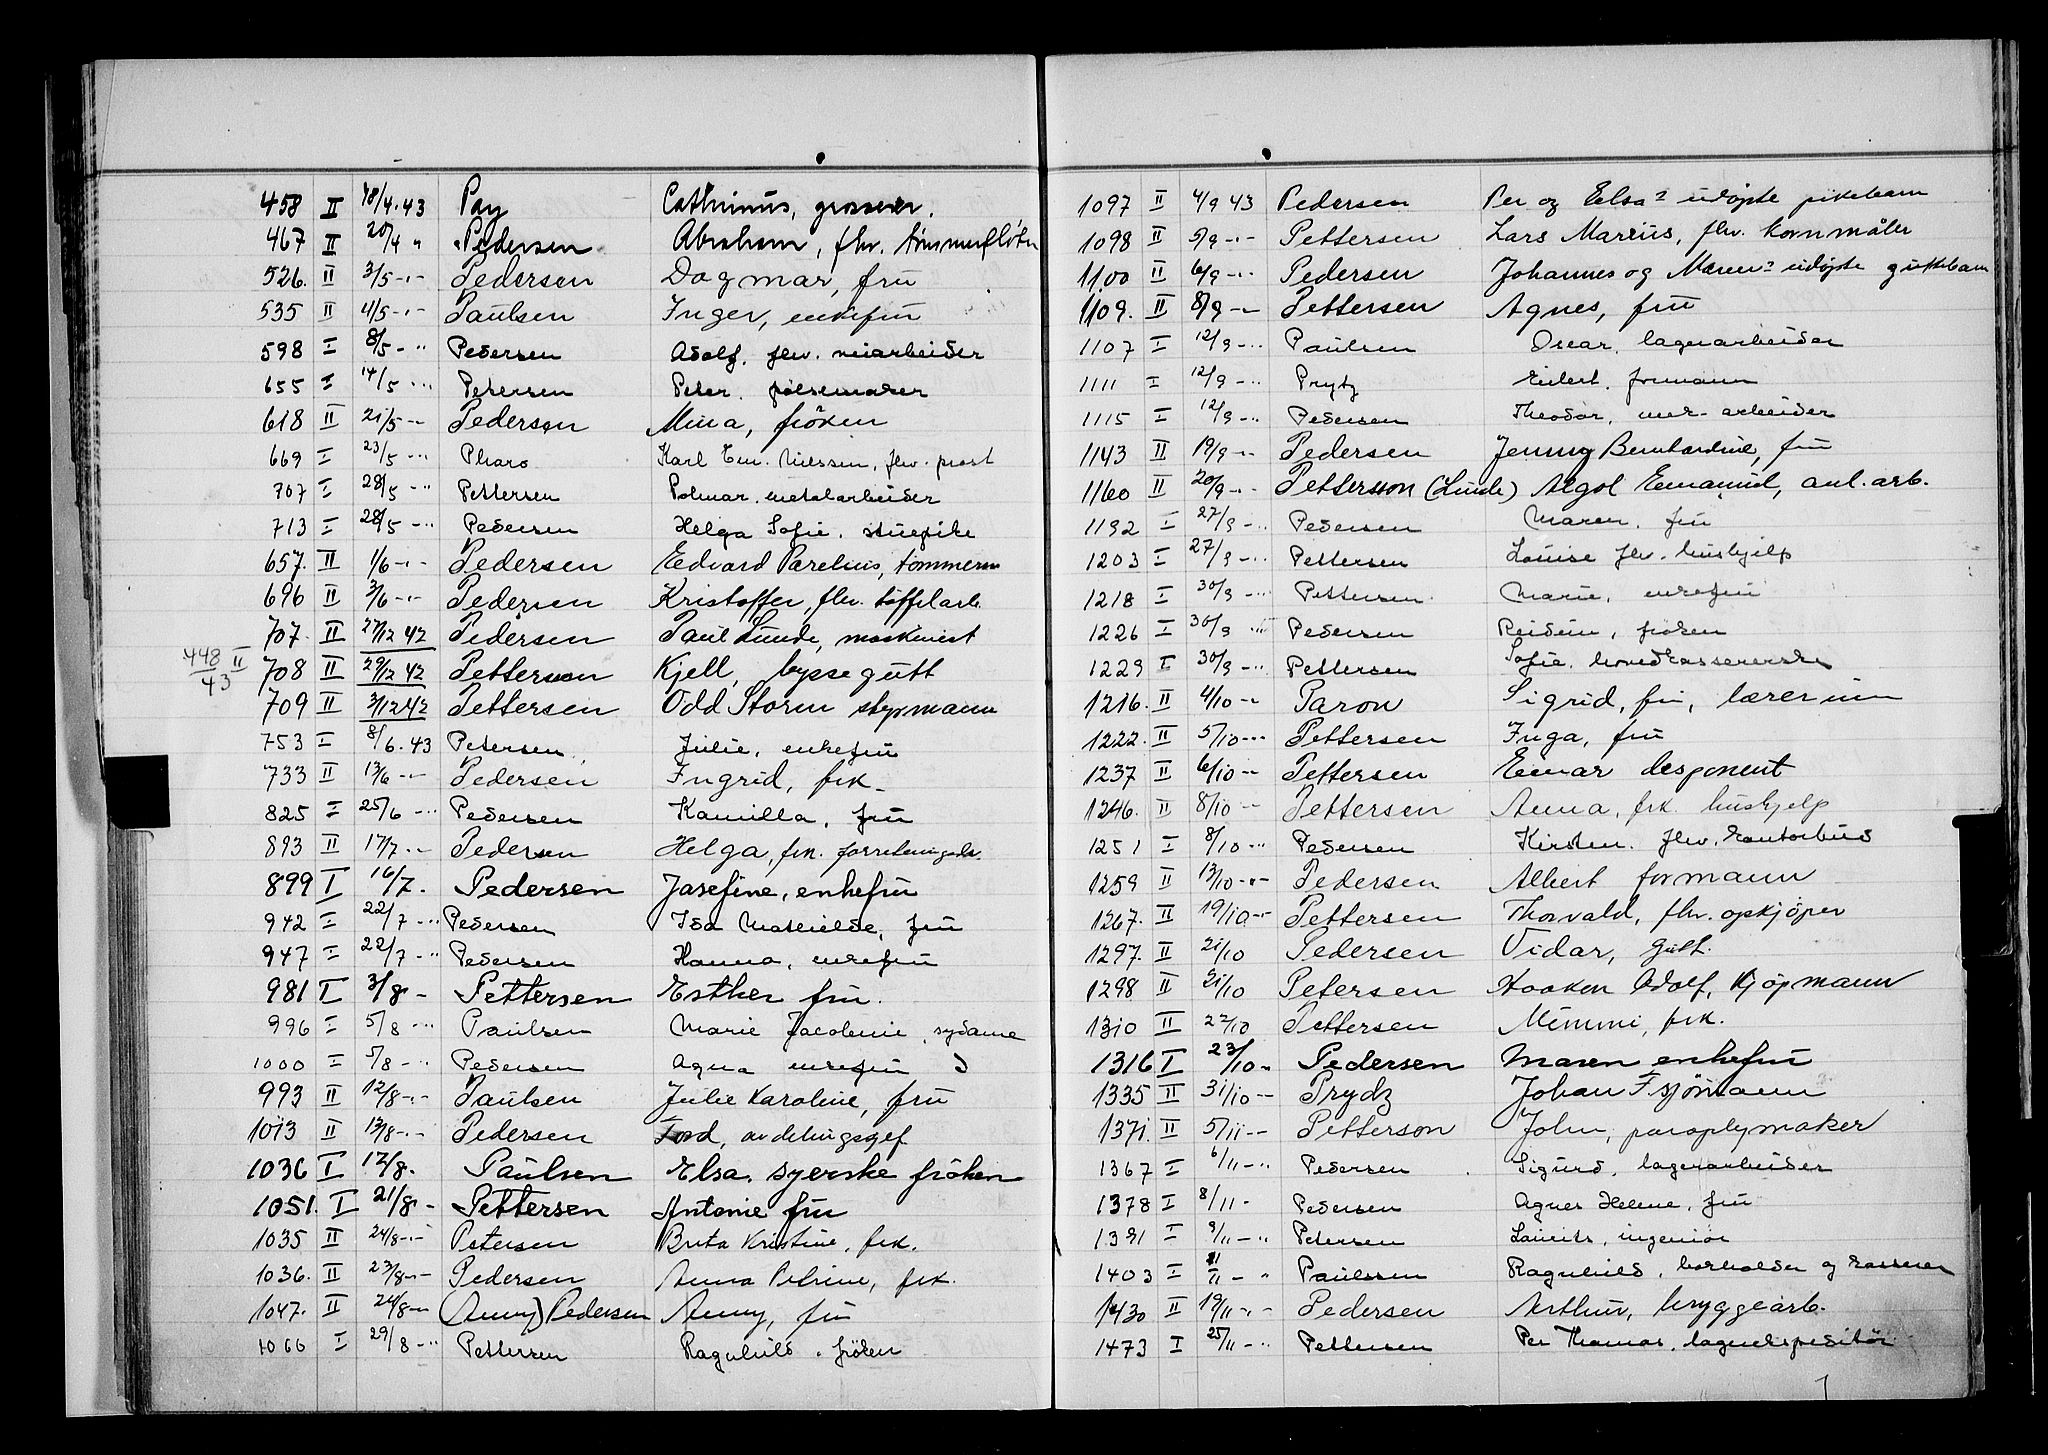 458 II 18/4.43 Pay Cathrinus, grosserer.
467 II 20/4 " Pedersen Abraham, fhv. tømmerfløter
526. II 3/5 -"- Pedersen Dagmar, fru
535 II 4/5 -"- Paulsen Inger, enkefru
598 I 8/5 - " Pedersen Adolf. fhv. veiarbeider
655 I 14/5 - " Petersen Peter. pølsemaker
618 II 21/5 -"- Pedersen Mina, frøken
669 I 23/5 - " Pharo Karl Em. Nielsen, fhv. prest
707 I 28/5 - " Pettersen Polmar. metalarbeider
713 I 28/5 - " Pedersen Helga Sofie. stuepike
657. II 1/6 -"- Pedersen Edvard Parelius, tømmerm
696 II 3/6 -"- Pedersen Kristoffer, fhv. tøffelarb.
707. II 27/12 42 Pedersen Paul Lunde, maskinist
448/43 II 708 II 29/12 42 Pettersen Kjell, byssegutt
709 II 3/12 42 Pettersen Odd Storm styrmann
753 I 8/6. 43 Petersen Julie, enkefru
733 II 13/6 -"- Pedersen Ingrid, frk.
825 I 25/6 - " Pedersen Kamilla. fru
893 II 17/7 -"- Pedersen Helga, frk. forretningsdr.
899 I 16/7. Pedersen Josefine, enkefru
942 I 22/7 - " Pedersen Ida Mathilde, fru
947 I 22/7 - " Pedersen Hanna, enkefru
981 I 3/8 - Pettersen Esther fru.
996 I 5/8 - " Paulsen Marie Jacobine, sydame
1000 I 5/8 - " Pedersen Agna enkefru
993 II 12/8 -"- Paulsen Julie Karoline, fru
1013 II 13/8 -"- Pedersen Tord, avdelingssjef
1036 I 17/8. Paulsen Elsa. syerske frøken
1051. I 21/8 - Pettersen Antonie fru
1035 II 24/8 -"- Petersen Brita Kristine, frk.
1036. II 23/8 -"- Pedersen Anna Petrine, frk.
1047. II 24/8 -"- (Anny) Pedersen Anny, fru
1066 I 29/8 - " Pettersen Ragnhild. frøken
1097 II 4/9 43 Pedersen Per og Elsa's udøpte pikebarn
1098 II 5/9 -"- Pettersen Lars Marius, fhv. kornmåler
1100 II 6/9 -"- Pedersen Johannes og Maren's udøpte guttebarn
1109. II 8/9 -"- Pettersen Agnes, fru
1107 I 12/9 - " Paulsen Oscar. lagerarbeider
1111 I 12/9 - " Prytz Eilert. formann
1115 I 12/9 - " Pedersen Theodor, mek. arbeider
1143 II 19/9 -"- Pedersen Jenny Bernhardine, fru
1160 II 20/9 -"- Pettersson (Linde) Algot Emanuel, anl. arb.
1192 I 27/9 - " Pedersen Maren. fru
1203 I 27/9 - " Pettersen Louise fhv. hushjelp
1218 I 30/9 - " Pettersen Marie, enkefru
1226 I 30/9 " Pedersen Reidun, frøken
1229 I 30/9 - " Pettersen Sofie. hovedkassererske
1216. II 4/10 -"- Paron Sigrid, fru, lærerinne
1222. II 5/10 -"- Pettersen Inga, fru
1237 II 6/10 -"- Pettersen Einar disponent
1246. II 8/10 -"- Pettersen Anna, frk. hushjelp
1251 I 8/10 - " Pedersen Kirsten. fhv. kontorbud
1259 II 13/10 -"- Pedersen Albert formann
1267. II 19/10 -"- Pettersen Thorvald, fhv. opkjøper
1297. II 21/10 Pedersen Vidar, gutt.
1298 II 21/10 Petersen Haakon Adolf, kjøpmann
1310 II 22/10 Pettersen Mimmi, frk.
1316 I 23/10 " Pedersen Maren enkefru
1335 II 31/10 -"- Prydz Johan F sjømann
1371. II 5/11 -"- Petterson John, paraplymaker
1367 I 6/11 - " Pedersen Sigurd, lagerarbeider
1378 I 8/11 - Pedersen Agnes Helene, fru
1391 I 9/11 - " Petersen Laurits, ingeniør
1403 I 11/11 - " Paulssen Ragnhild. bokholder og kasserer
1430 II 19/11 -"- Pedersen Arthur, bryggearb.
1473 I 25/11 - " Pettersen Per Thomas, lagerekspeditør.